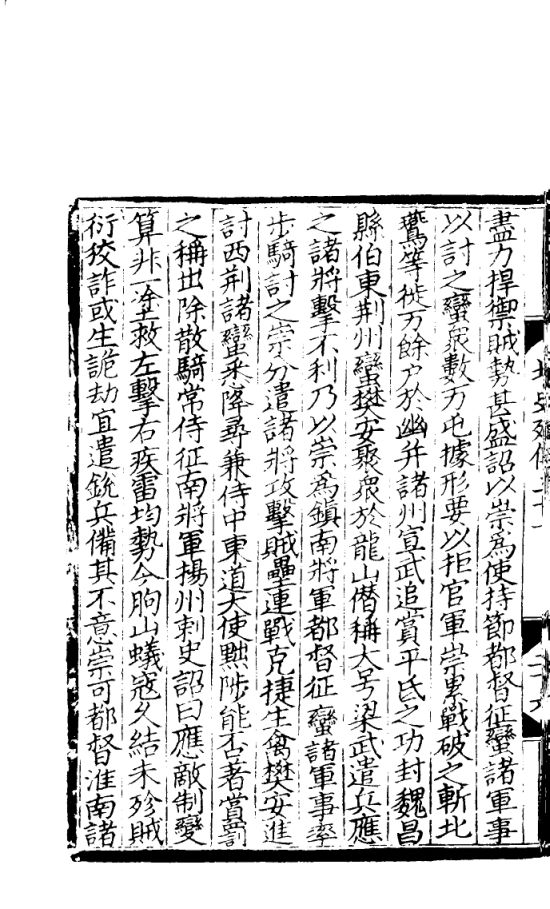 盡力捍禦賊勢甚盛詔以崇爲使持節都督征蠻諸軍事
以討之蠻衆數万屯據形要以拒官軍崇累戰破之斬北
鸞等徙万餘户於幽并諸州宣武追賞平氐之功封魏昌
縣伯東荆州蠻樊安聚衆於龍山僭稱大号梁武遣兵應
之諸將擊不利乃以崇爲鎮南將軍都督征蠻諸軍事率
步騎討之崇分遣諸將攻擊賊壘連戰克捷生禽樊安進
討西荆諸蠻悉降尋兼侍中東道大使黜陟能否著賞罰
之稱出除散騎常侍征南將軍揚州刺史詔曰應敵制變
算非一塗救左擊右疾雷均勢今朐山蟻寇久結未殄賊
衍狡詐或生詭劫宜遣銳兵備其不意崇可都督淮南諸